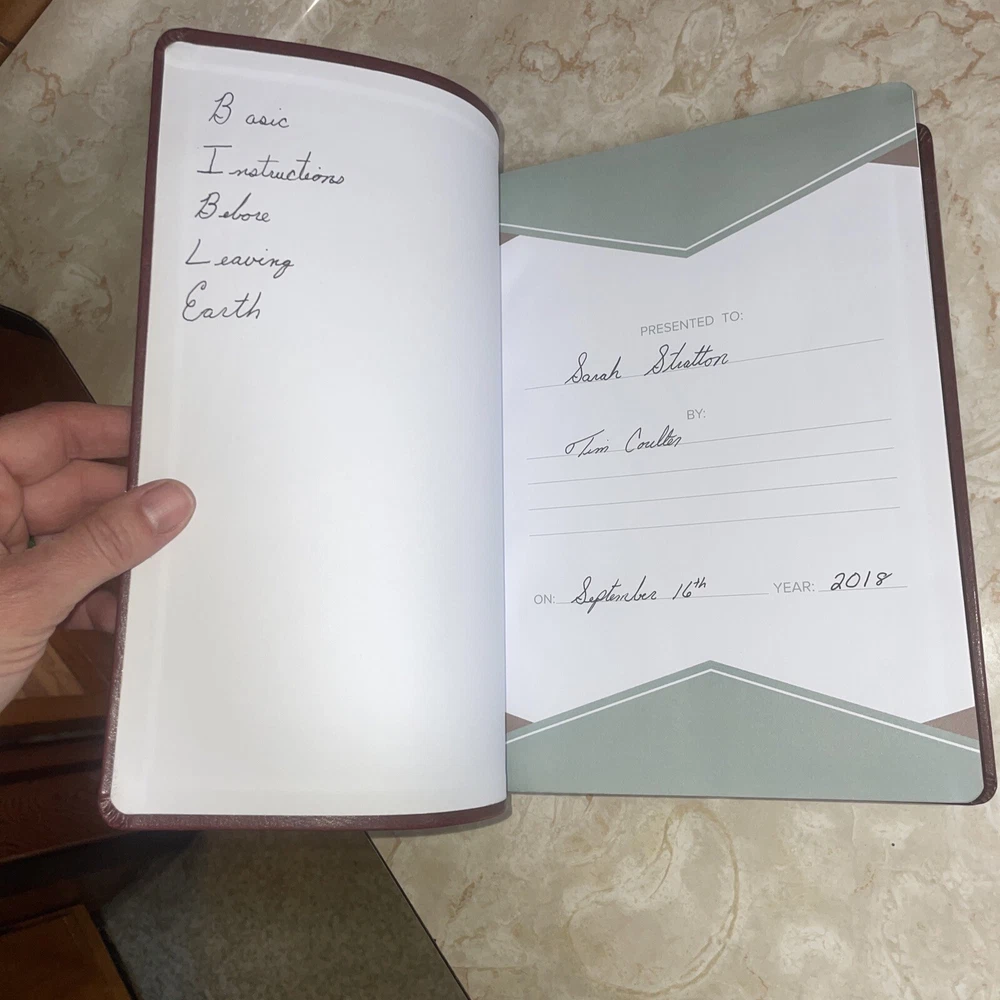 Basic
Instructions
Before
Leaving
Earth
PRESENTED TO:
Sarah Stratton
BY:
Tim Coulter
ON: September 16th YEAR: 2018